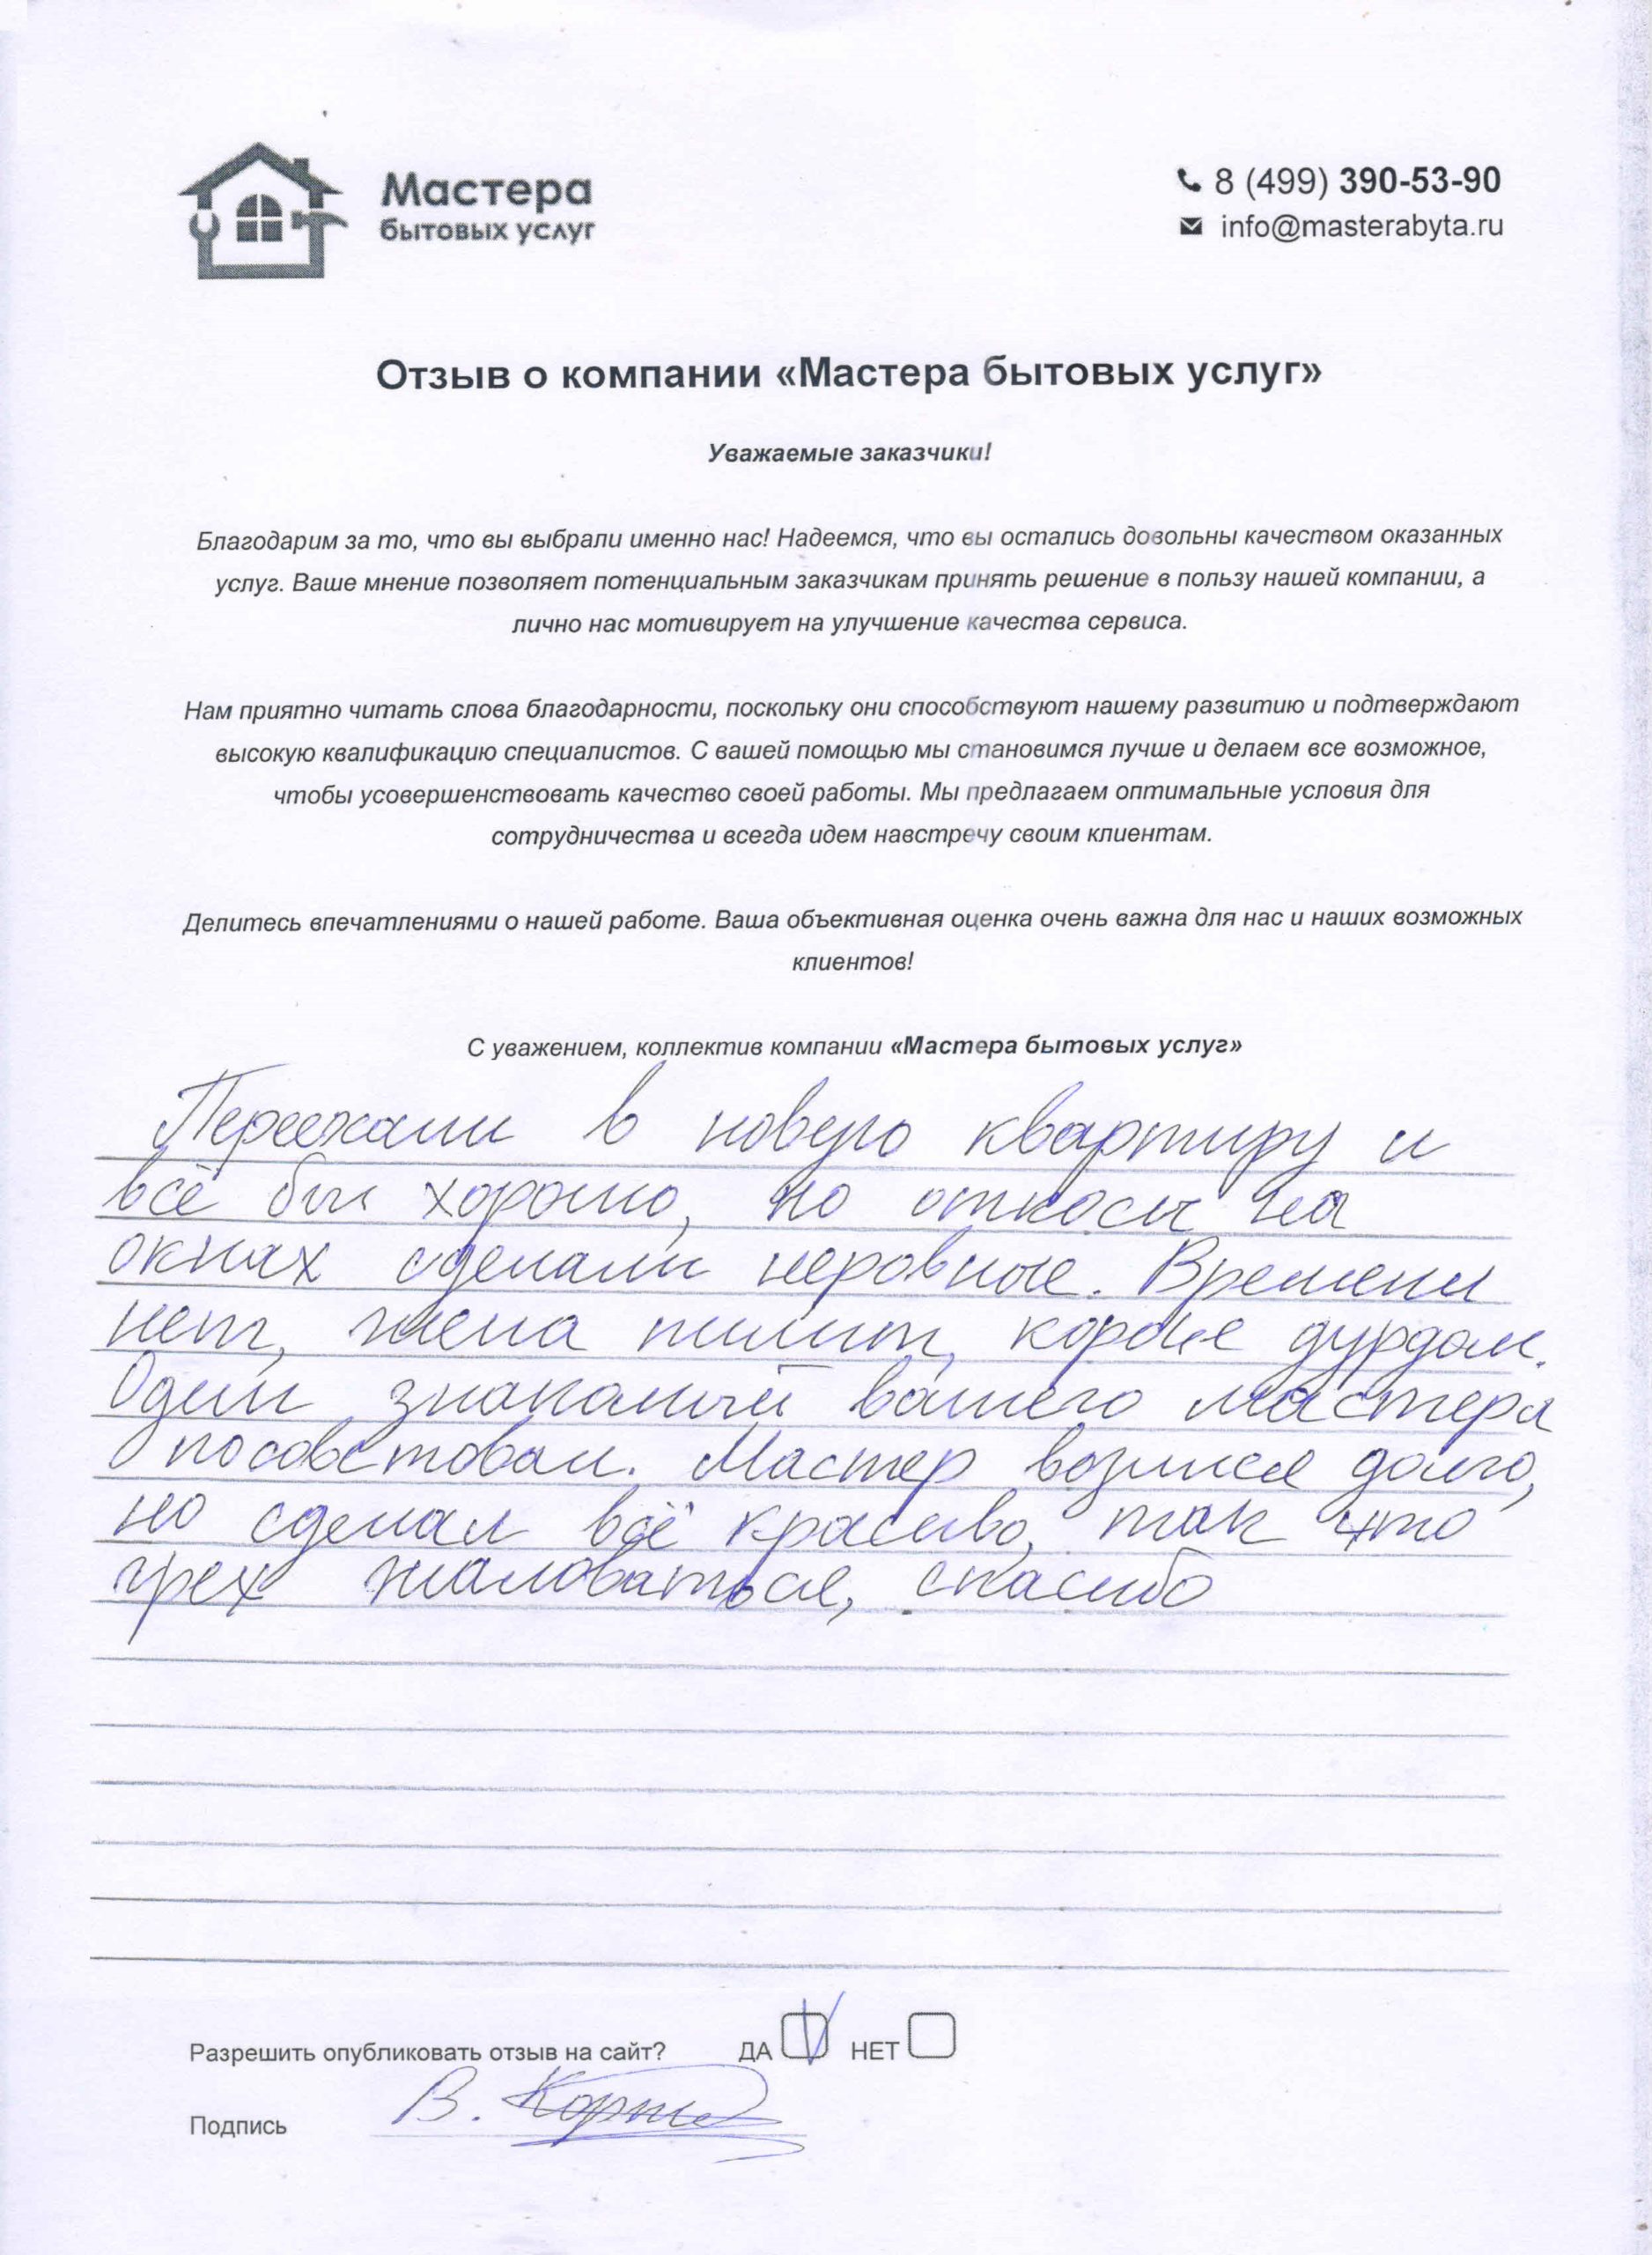 Мастера
бытовых услуг
8 (499) 390-53-90
info@masterabyta.ru
Отзыв о компании «Мастера бытовых услуг»
Уважаемые заказчики!
Благодарим за то, что вы выбрали именно нас! Надеемся, что вы остались довольны качеством оказанных
услуг. Ваше мнение позволяет потенциальным заказчикам принять решение в пользу нашей компании, а
лично нас мотивирует на улучшение качества сервиса.
Нам приятно читать слова благодарности, поскольку они способствуют нашему развитию и подтверждают
высокую квалификацию специалистов. С вашей помощью мы становимся лучше и делаем все возможное,
чтобы усовершенствовать качество своей работы. Мы предлагаем оптимальные условия для
сотрудничества и всегда идем навстречу своим клиентам.
Делитесь впечатлениями о нашей работе. Ваша объективная оценка очень важна для нас и наших возможных
клиентов!
С уважением, коллектив компании «Мастера бытовых услуг»
Переехали в новую квартиру и
всё бы хорошо, но откосы на
окнах сделали неровные. Времени
нет, жена пилит, короче дурдом.
Один знакомый вашего мастера
посоветовал. Мастер возился долго,
но сделал всё красиво, так что
грех жаловаться, спасибо
Разрешить опубликовать отзыв на сайт? ДА НЕТ
Подпись В.